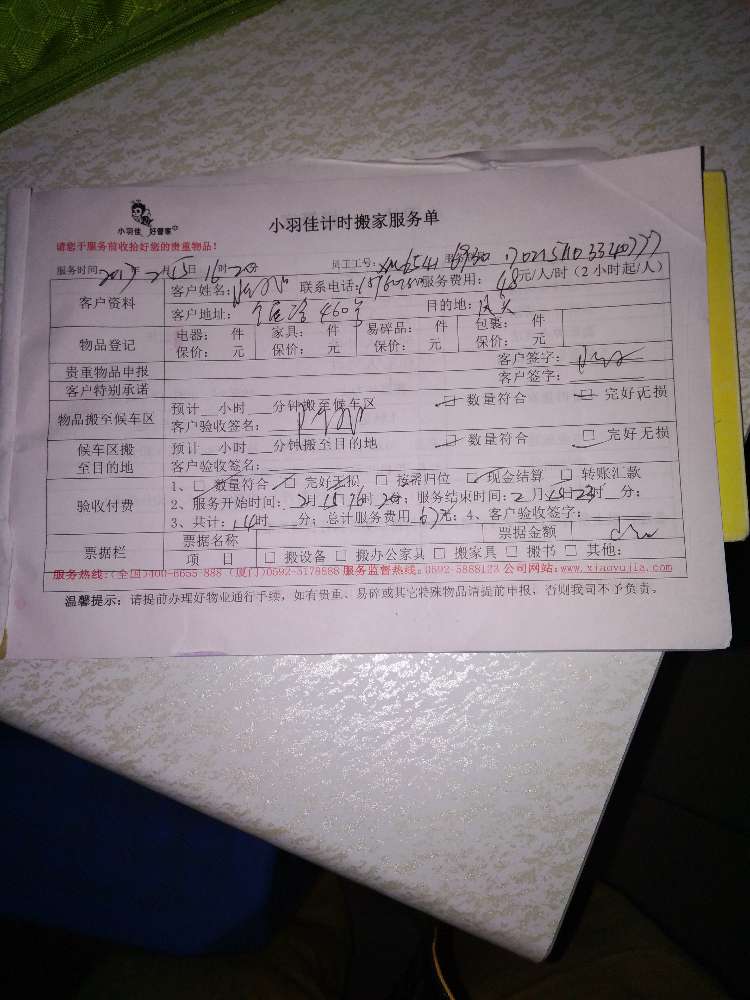 小羽佳 好管家
小羽佳计时搬家服务单
请您于服务前收拾好您的贵重物品！
服务时间：2017年2月15日16时20分 员工工号：
客户资料 客户姓名： 联系电话： 服务费用：48元/人/时（2小时起/人）
客户地址： 460号 目的地：
物品登记 电器： 件 家具： 件 易碎品： 件 包裹： 件
保价： 元 保价： 元 保价： 元 保价： 元
贵重物品申报 客户签字：
客户特别承诺 客户签字：
物品搬至候车区 预计__小时__分钟搬至候车区 □ 数量符合 □ 完好无损
客户验收签名：
候车区搬至目的地 预计__小时__分钟搬至目的地 □ 数量符合 □ 完好无损
客户验收签名：
验收付费 1、□ 数量符合 □ 完好无损 □ 按需归位 □ 现金结算 □ 转账汇款
2、服务开始时间：2月15日16时20分；服务结束时间：2月15日23时__分；
3、共计： 时__分；总计服务费用 元；4、客户验收签字：
票据栏 票据名称 票据金额
项 目 □ 搬设备 □ 搬办公家具 □ 搬家具 □ 搬书 □ 其他：
服务热线：(全国)400-6655-888 (厦门)0592-3178888 服务监督热线：0592-5888123 公司网站：www.xiaoyujia.com
温馨提示：请提前办理好物业通行手续，如有贵重、易碎或其它特殊物品请提前申报，否则我司不予负责。